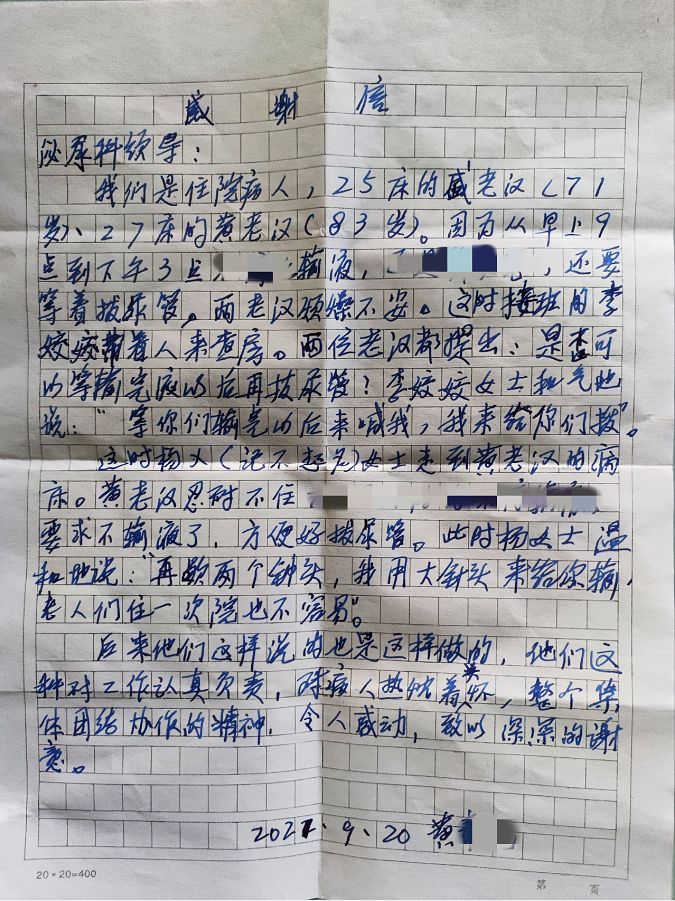 感谢信
泌尿科领导：
我们是住院病人，25床的盛老汉（71
岁）、27床的黄老汉（83岁）。因为从早上9
点到下午3点 输液， ，还要
等着拔尿管。两老汉烦燥不安。这时接班的李
姣姣带着人来查房。两位老汉都提出：是否可
以等输完液以后再拔尿管？李姣姣女士和气地
说：“等你们输完以后来喊我，我来给你们拔”。
这时杨X（记不起名）女士走到黄老汉的病
床。黄老汉忍耐不住
要求不输液了，方便好拔尿管。此时杨女士温
和地说：“再歇两个钟头，我用大针头来给你输，
老人们住一次院也不容易”。
后来他们这样说的也是这样做的，他们这
种对工作认真负责，对病人热忱关怀，整个集
体团结协作的精神，令人感动，致以深深的谢
意。
2021、9、20 黄
20×20=400
第 页